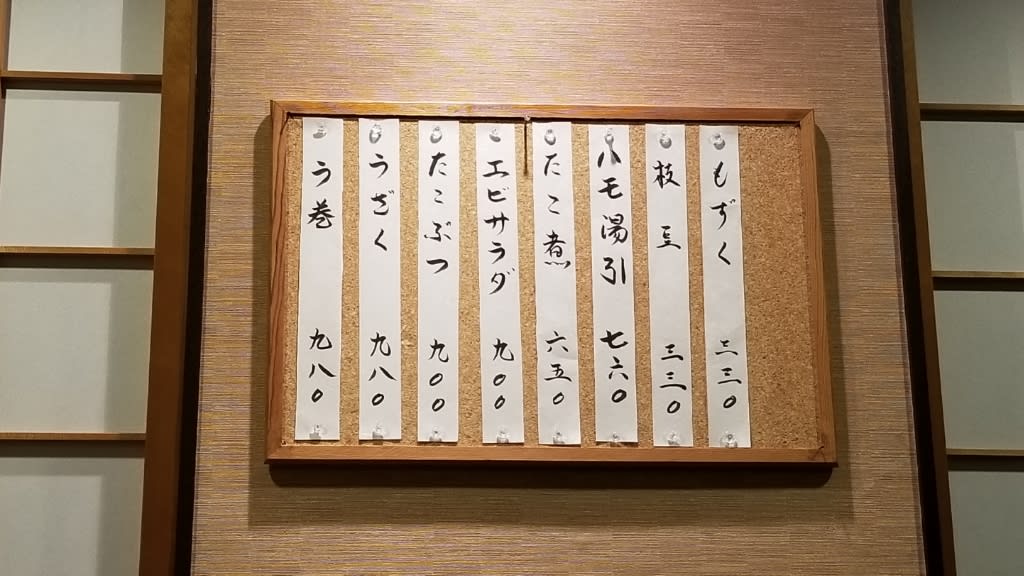 もずく 三三〇
枝豆 三三〇
ハモ湯引 七六〇
たこ煮 六五〇
エビサラダ 九〇〇
たこぶつ 九〇〇
うざく 九八〇
う巻 九八〇